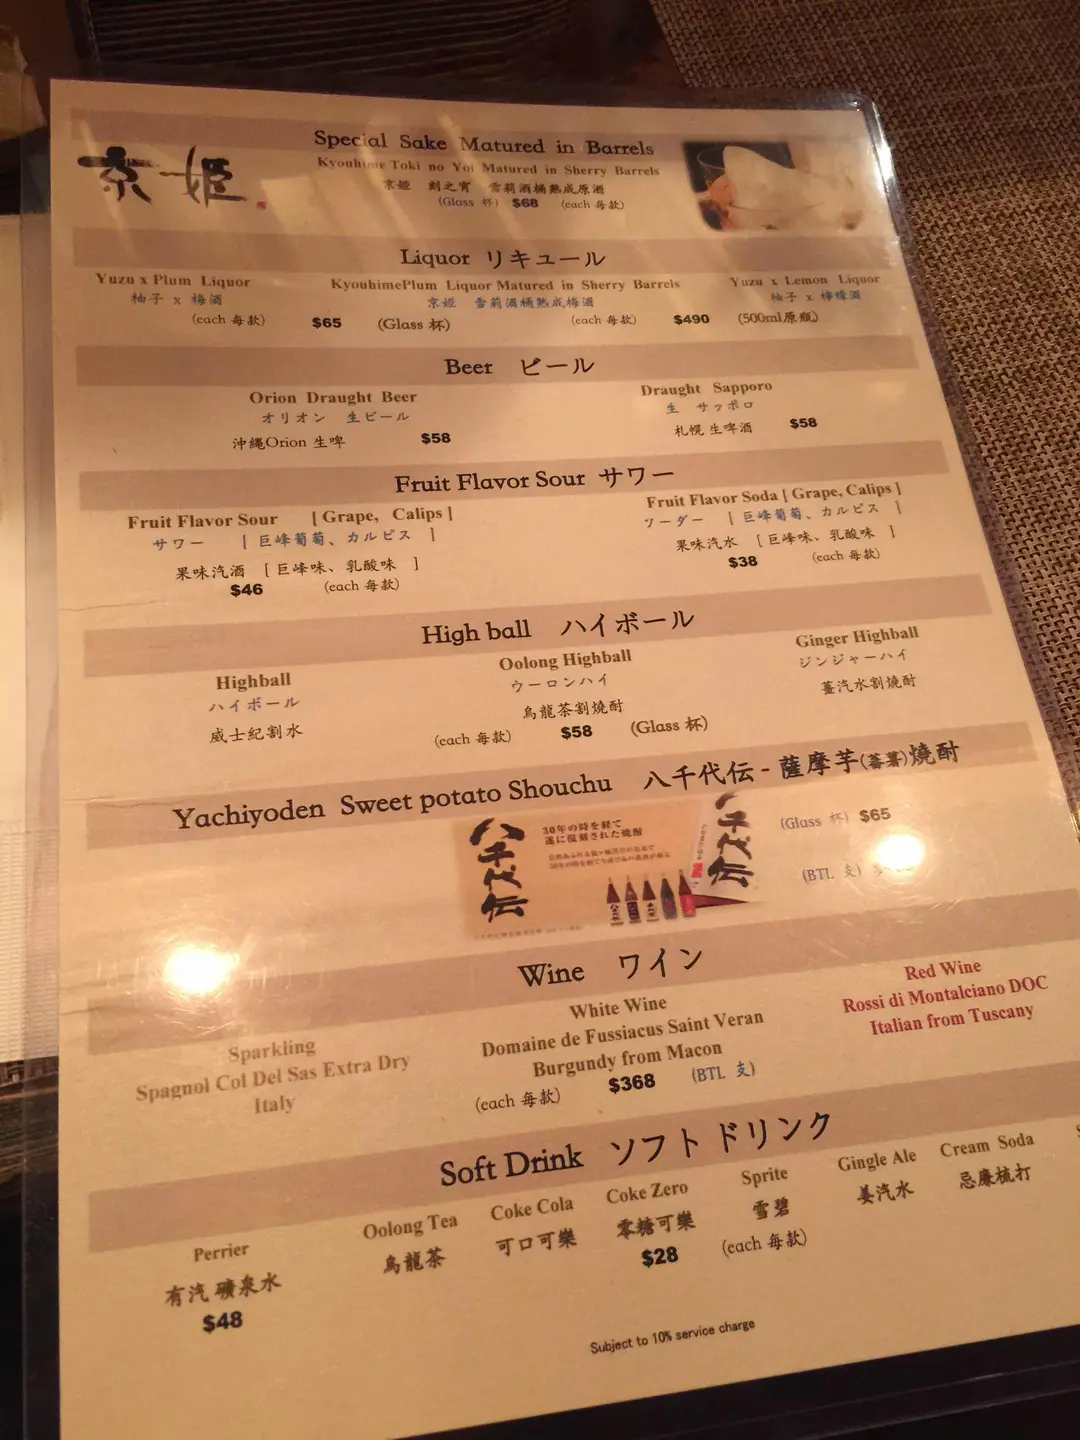 京姫
Special Sake Matured in Barrels
Kyouhime Toki no Yoi Matured in Sherry Barrels
京姫 刻之宵 雪莉酒桶熟成原酒
(Glass 杯) $68 (each 每款)
Liquor リキュール
Yuzu x Plum Liquor KyouhimePlum Liquor Matured in Sherry Barrels Yuzu x Lemon Liquor
柚子 x 梅酒 京姫 雪莉酒桶熟成梅酒 柚子 x 檸檬酒
(each 每款) $65 (Glass 杯) (each 每款) $490 (500ml原瓶)
Beer ビール
Orion Draught Beer Draught Sapporo
オリオン 生ビール 生 サッポロ
沖縄Orion 生啤 $58 札幌 生啤酒 $58
Fruit Flavor Sour サワー
Fruit Flavor Sour [ Grape, Calips ] Fruit Flavor Soda [ Grape, Calips ]
サワー [ 巨峰葡萄、カルピス ] ソーダー [ 巨峰葡萄、カルピス ]
果味汽酒 [ 巨峰味、乳酸味 ] 果味汽水 [ 巨峰味、乳酸味 ]
$46 (each 每款) $38 (each 每款)
High ball ハイボール
Highball Oolong Highball Ginger Highball
ハイボール ウーロンハイ ジンジャーハイ
威士紀割水 烏龍茶割燒酎 薑汽水割燒酎
(each 每款) $58 (Glass 杯)
Yachiyoden Sweet potato Shouchu 八千代伝 - 薩摩芋(蕃薯)燒酎
八千代伝
30年の時を経て
遂に復刻された焼酎
八千代伝
(Glass 杯) $65
(BTL 支)
Wine ワイン
Sparkling White Wine Red Wine
Spagnol Col Del Sas Extra Dry Domaine de Fussiacus Saint Veran Rossi di Montalciano DOC
Italy Burgundy from Macon Italian from Tuscany
(each 每款) $368 (BTL 支)
Soft Drink ソフトドリンク
Perrier Oolong Tea Coke Cola Coke Zero Sprite Gingle Ale Cream Soda
有汽礦泉水 烏龍茶 可口可樂 零糖可樂 雪碧 姜汽水 忌廉梳打
$48 $28 (each 每款)
Subject to 10% service charge